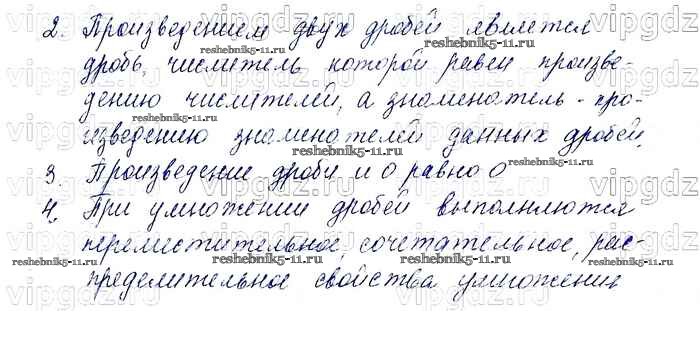 2. Произведением двух дробей является
дробь, числитель которой равен произве-
дению числителей, а знаменатель - про-
изведению знаменателей данных дробей.
3. Произведение дроби и 0 равно 0
4. При умножении дробей выполняются
переместительное, сочетательное, рас-
пределительное свойства умножения
vipgdz.ru
reshebnik5-11.ru